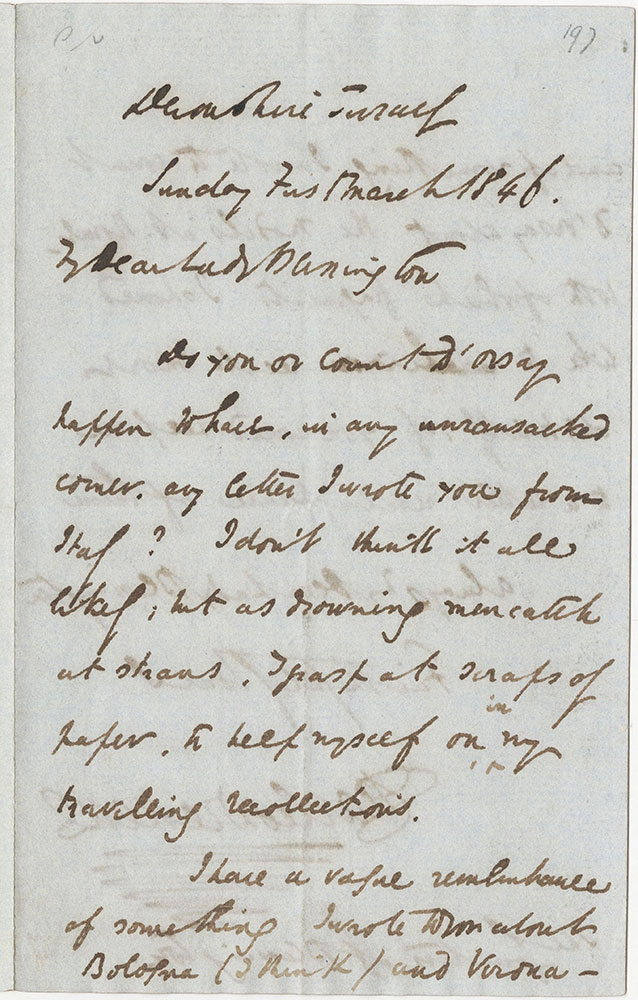 197
Devonshire Terrace
Sunday First March 1846.
My Dear Lady Blessington
Do you or Count D'orsay
happen to have, in any unransacked
corner. any letter I wrote you from
Italy? I don't think it all
likely; but as drowning men catch
at straws, I grasp at scraps of
paper, to help myself on in my
travelling recollections.
I have a vague remembrance
of something I wrote to you about
Bologna (I think) and Verona –